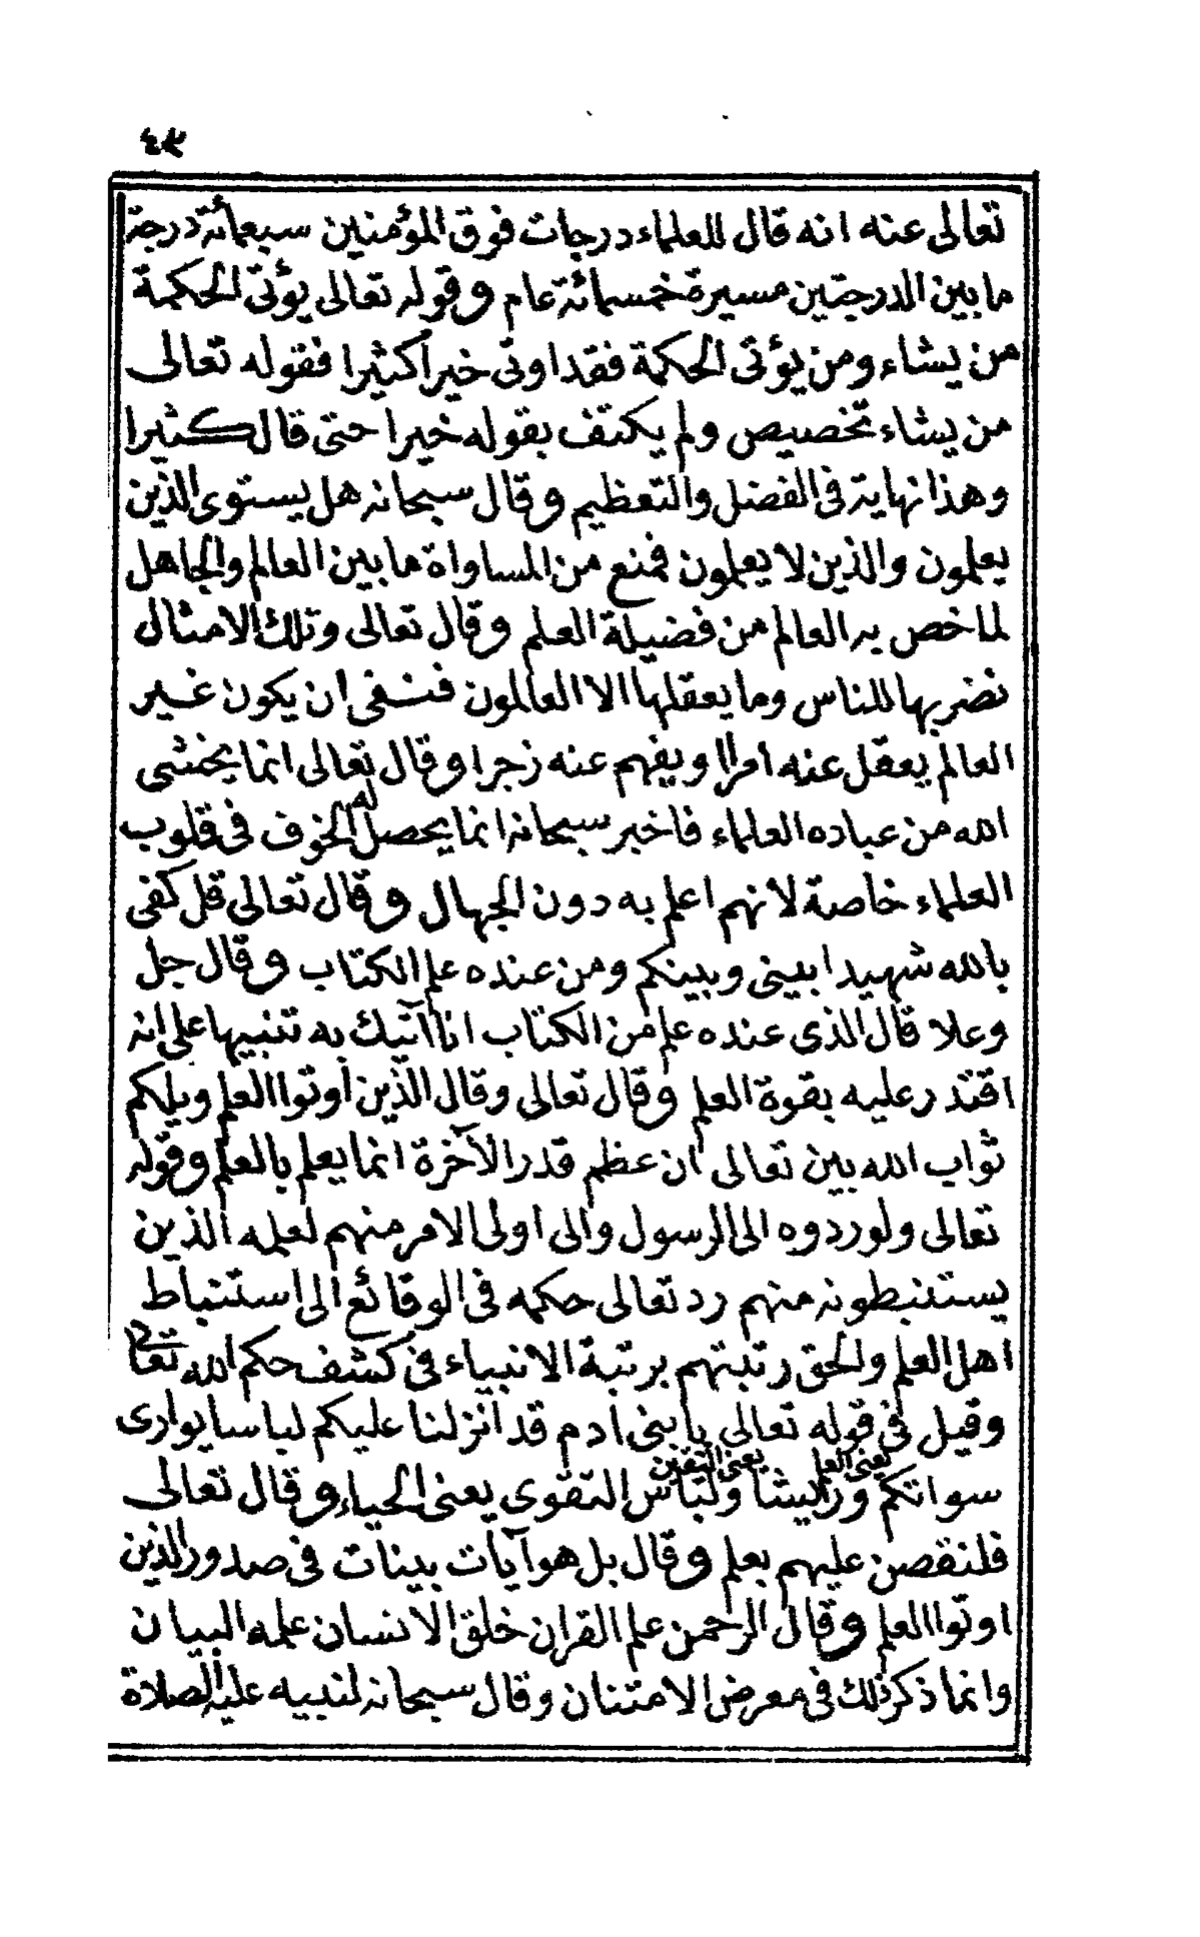 ٤٣
تعالى عنه انه قال للعلماء درجات فوق المؤمنين سبعمائة درجة
ما بين الدرجتين مسيرة خمسمائة عام وقوله تعالى يؤتى الحكمة
من يشاء ومن يؤتى الحكمة فقد اوتى خيرا كثيرا فقوله تعالى
من يشاء تخصيص ولم يكتف بقوله خيرا حتى قال كثيرا
وهذا نهاية فى الفضل والتعظيم وقال سبحانه هل يستوى الذين
يعلمون والذين لا يعلمون فمنع من المساواة ما بين العالم والجاهل
لما خص به العالم من فضيلة العلم وقال تعالى وتلك الامثال
نضربها للناس وما يعقلها الا العالمون فنفى ان يكون غير
العالم يعقل عنه امرا او يفهم عنه زجرا وقال تعالى انما يخشى
الله من عباده العلماء فاخبر سبحانه انما يحصل له الخوف فى قلوب
العلماء خاصة لانهم اعلم به دون الجهال وقال تعالى قل كفى
بالله شهيدا بينى وبينكم ومن عنده علم الكتاب وقال جل
وعلا قال الذى عنده علم من الكتاب انا آتيك به تنبيها على انه
اقتدر عليه بقوة العلم وقال تعالى وقال الذين أوتوا العلم ويلكم
ثواب الله بين تعالى ان عظم قدر الآخرة انما يعلم بالعلم وقوله
تعالى ولو ردوه الى الرسول والى اولى الامر منهم لعلمه الذين
يستنبطونه منهم رد تعالى حكمه فى الوقائع الى استنباط
اهل العلم والحق رتبتهم برتبة الانبياء فى كشف حكم الله تعالى
وقيل فى قوله تعالى يا بنى ادم قد انزلنا عليكم لباسا يوارى
يعنى العلم يعنى اليقين
سواتكم وريشا ولباس التقوى يعنى الحياء وقال تعالى
فلنقصن عليهم بعلم وقال بل هو آيات بينات فى صدور الذين
اوتوا العلم وقال الرحمن علم القران خلق الانسان علمه البيان
وانما ذكر ذلك فى معرض الامتنان وقال سبحانه لنبيه عليه الصلاة